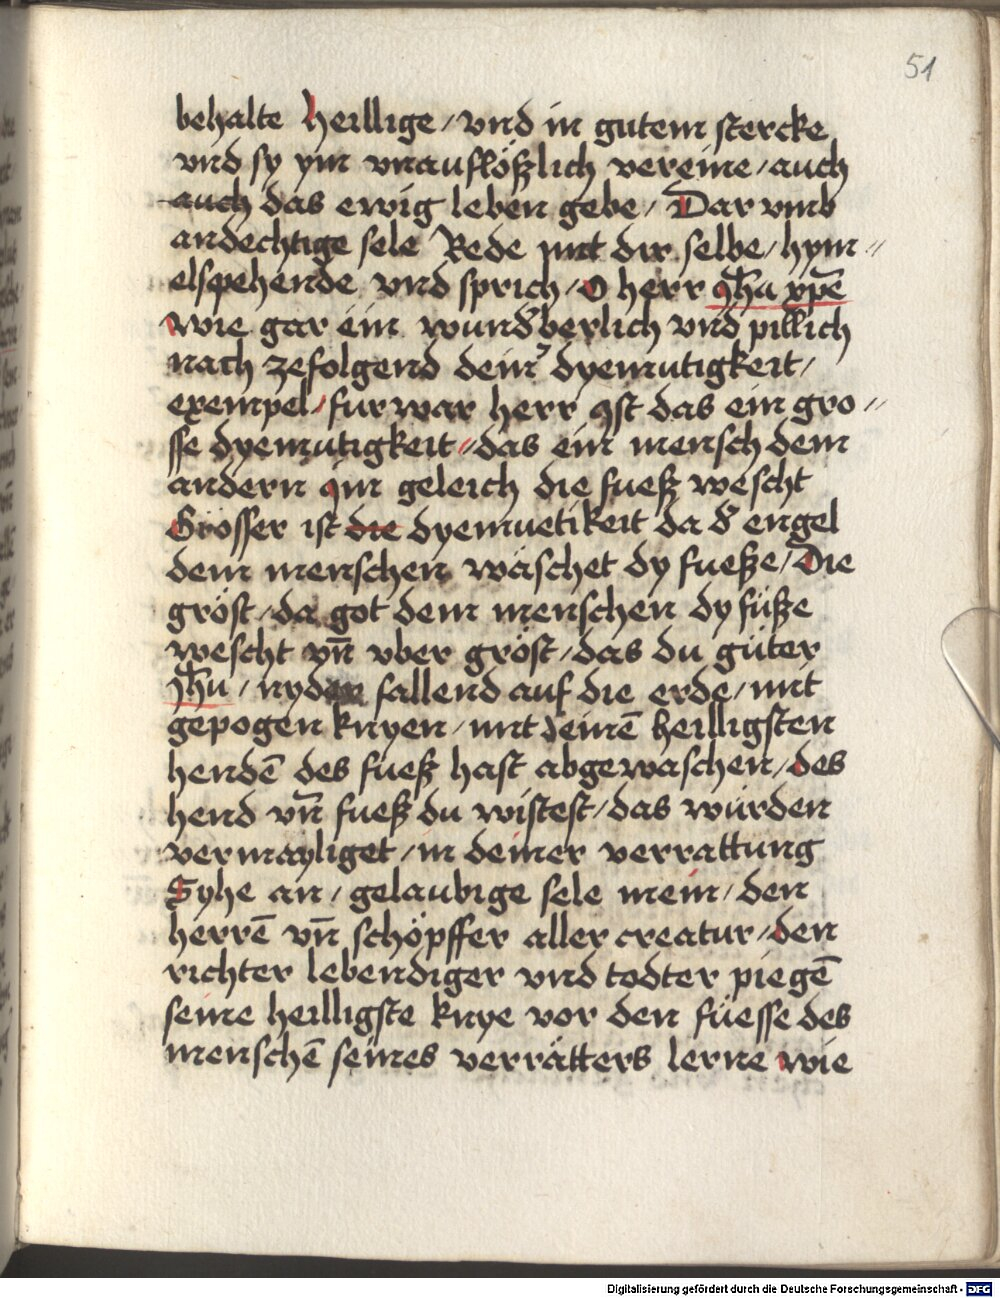 51
behalte heillige / vnd in gutem stercke
vnd sy ym vnauflößlich vereine / auch
auch das ewig leben gebe / Dar vmb
andechtige sele Rede mit dir selbe / hym⸗
elspehende vnd sprich / O herr yh̄u xp̄e
wie gar ein wund'berlich vnd pillich
nach zefolgend deinr̄ dyemutigkeit /
exempel / fur war herr yst das ein gro⸗
sse dyemutigkeit / das ein mensch dem
andern ym geleich die fueß wescht
Grosser ist die dyemuetikeit da d' engel
dem menschen wäschet dy fueße / Die
gröst / da got dem menschen dy füße
wescht vn̄ vber gröst / das du güter
yh̄u / nyder fallend auf die erde / mit
gepogen knyen / mit deinē heilligsten
hendē des fueß hast abgewaschen / des
hend vn̄ fueß du wistest / das würden
vermayliget / in deiner verrattung
Syhe an / gelaubige sele mein / den
herrē vn̄ schöpffer aller creatur / den
richter lebendiger vnd todter piegē
seine heilligste knye vor den füesse des
menschē seines verrätters lerne wie
Digitalisierung gefördert durch die Deutsche Forschungsgemeinschaft - DFG